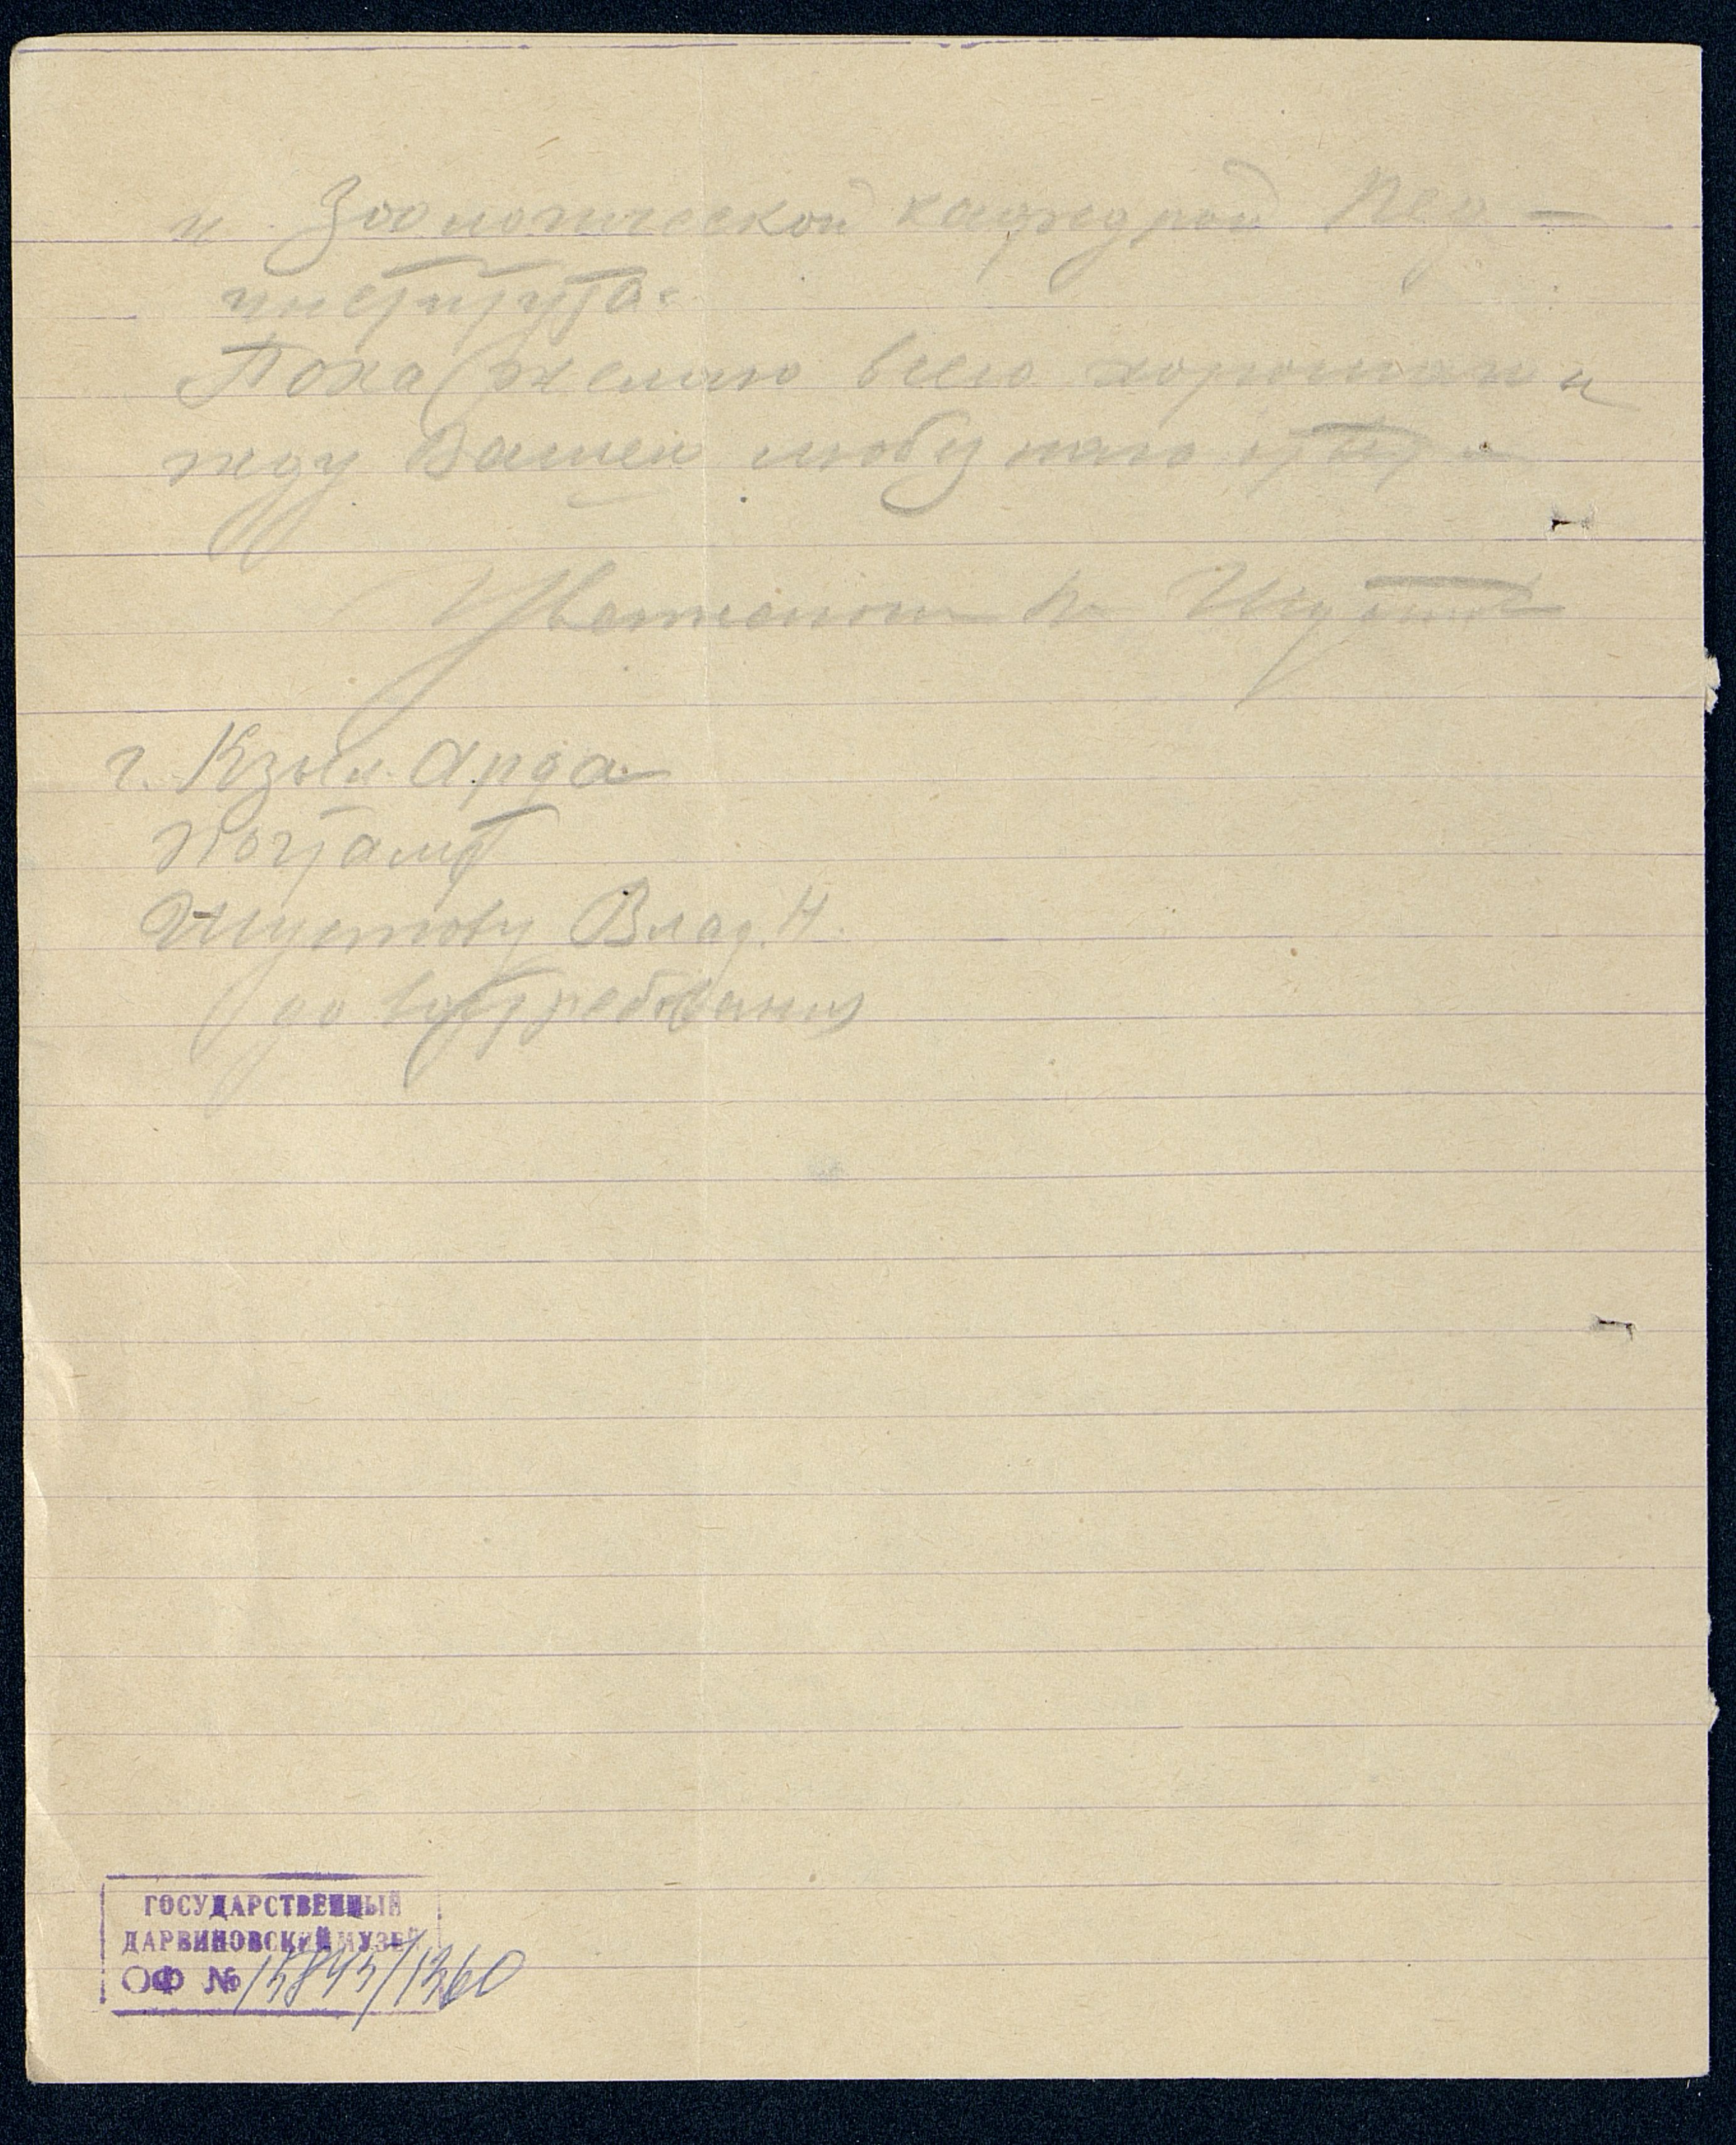 и Зоологической кафедрой Пед-
института.
Пока желаю всего хорошего и
жду Вашего любезного ответа
Уважающий Вас Шустов
г. Кзыл Арда
Почтамт
Шустову Влад. Н.
до востребования
ГОСУДАРСТВЕННЫЙ
ДАРВИНОВСКИЙ МУЗЕЙ
ОФ № 15843/1360